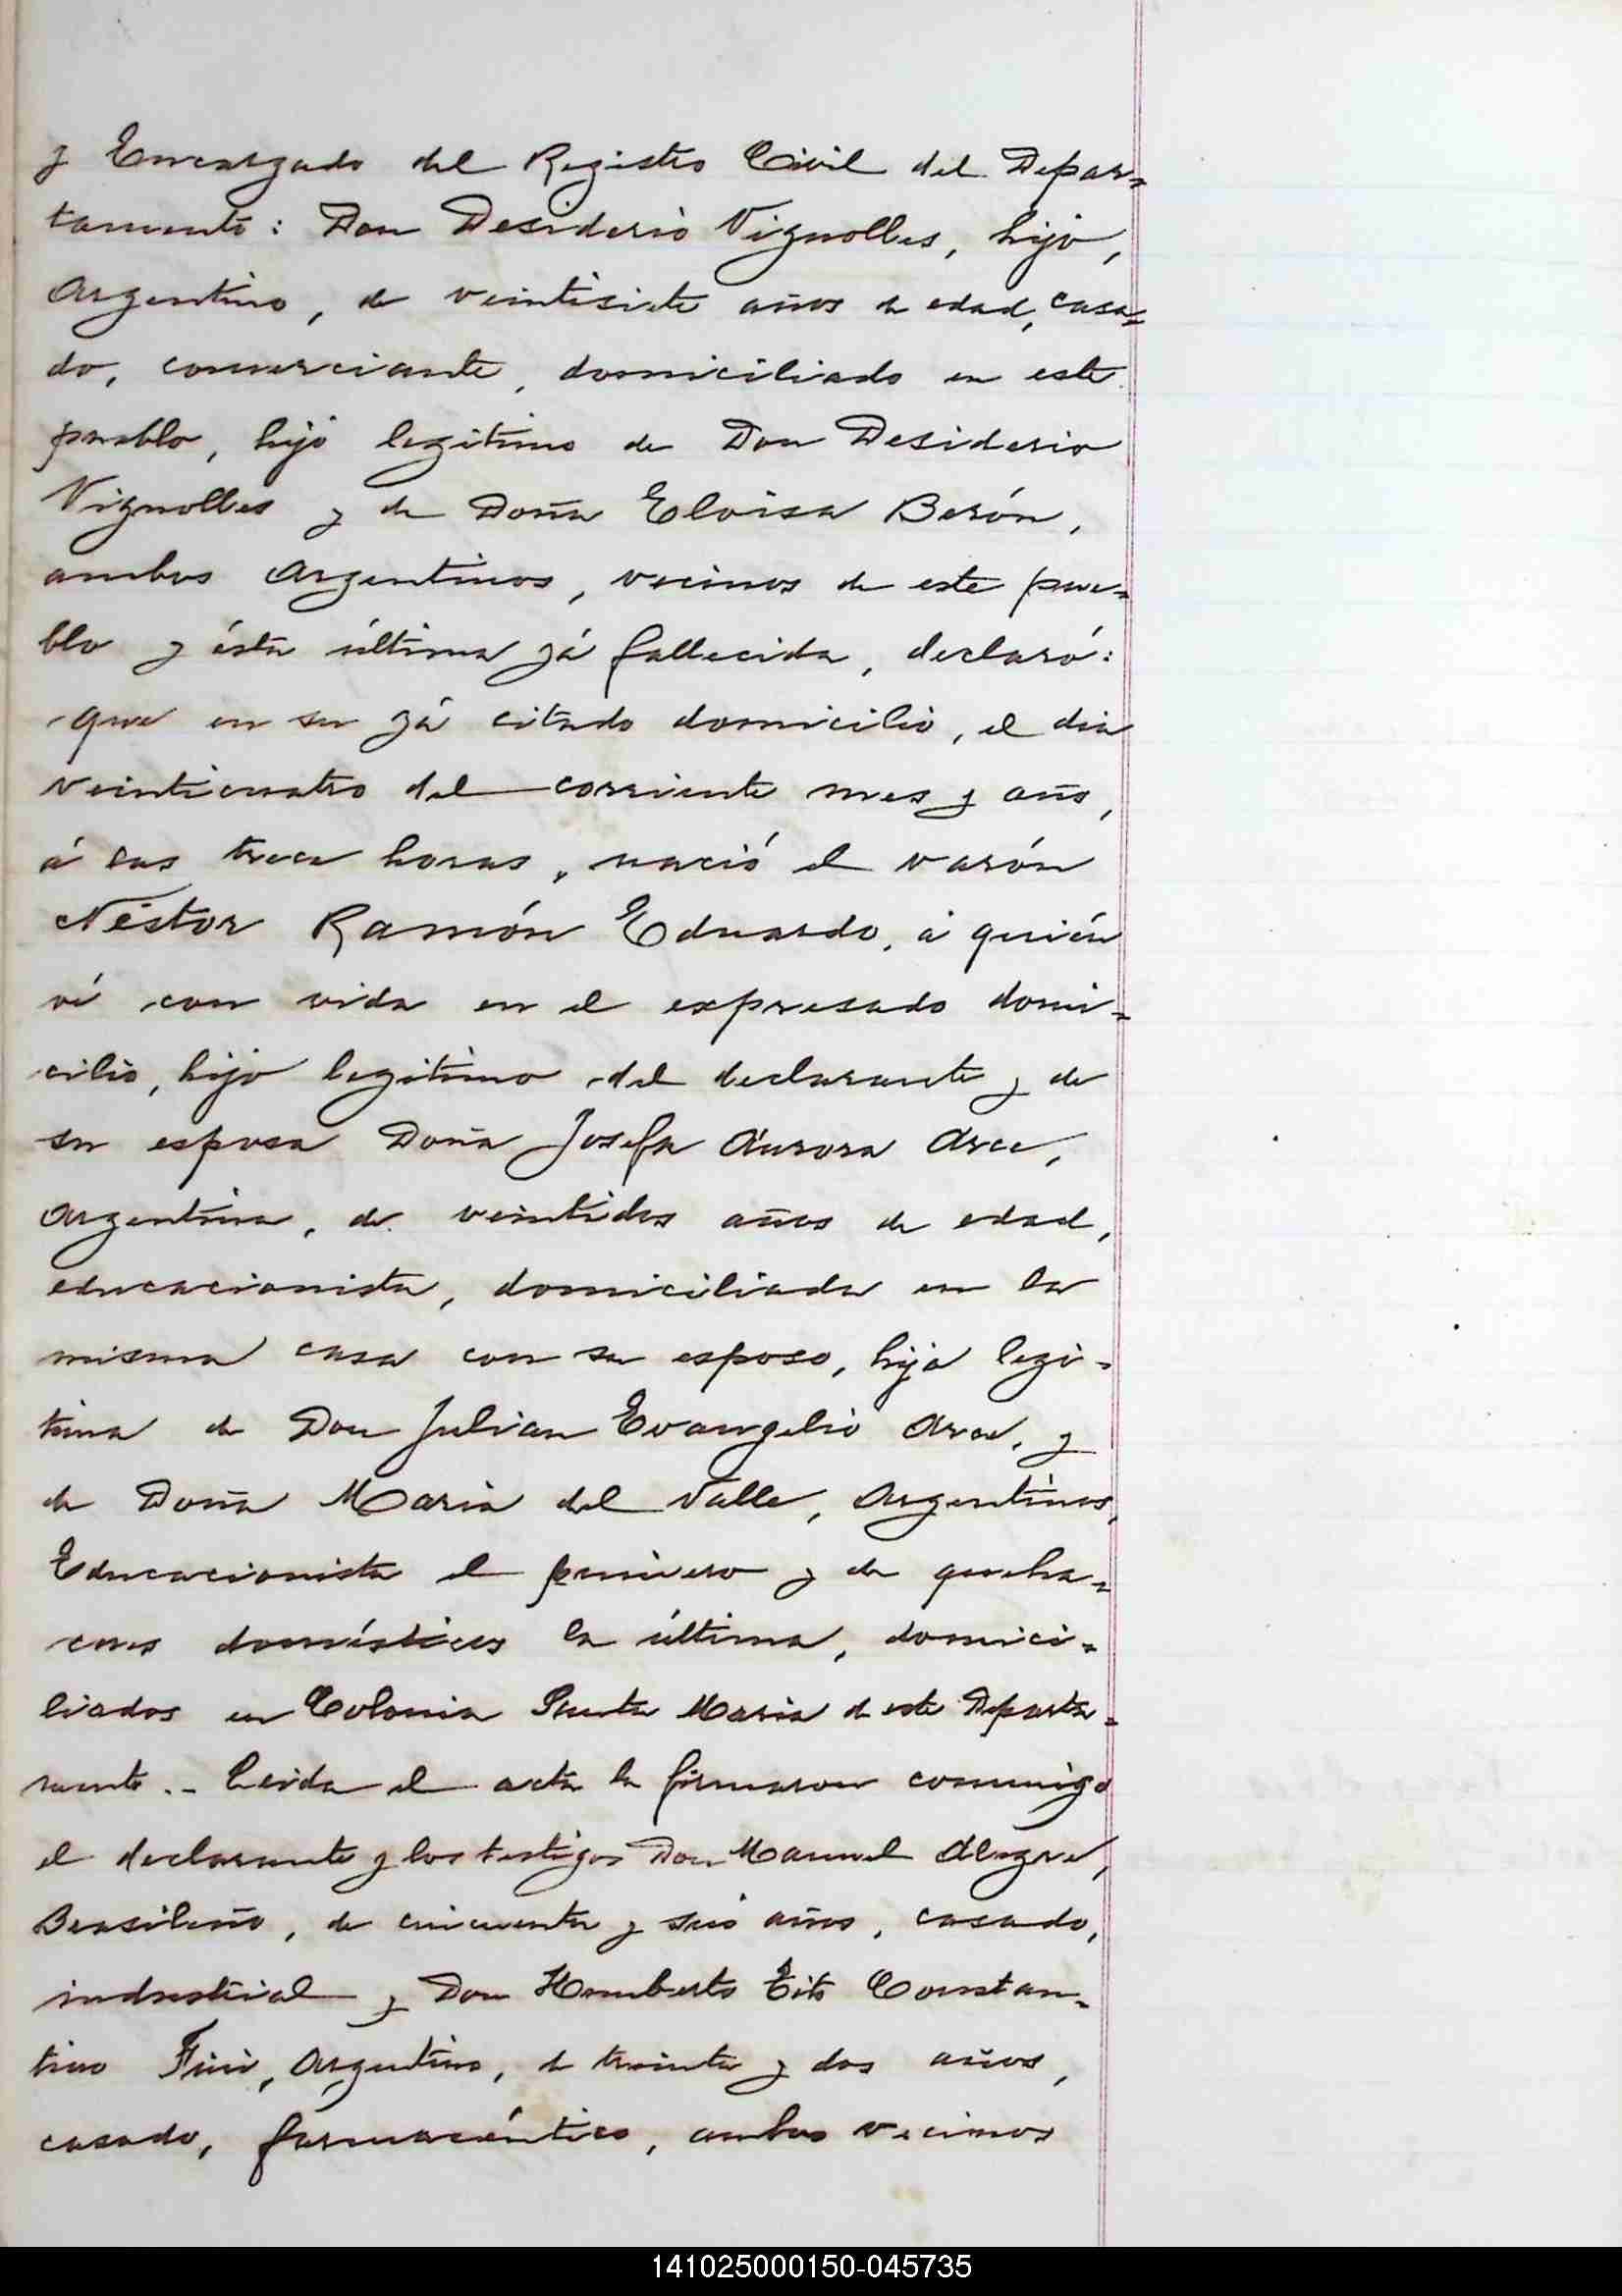 y Encargado del Registro Civil del Depar=
tamento: Don Desiderio Vignolles, hijo,
Argentino, de veintisiete años de edad, casa=
do, comerciante, domiciliado en este
pueblo, hijo legitimo de Don Desiderio
Vignolles y de Doña Eloisa Berón,
ambos Argentinos, vecinos de este pue=
blo y ésta última yá fallecida, declaró:
que en su yá citado domicilio, el dia
veinticuatro del corriente mes y año,
á las trece horas, nació el varón
Néstor Ramón Eduardo, á quién
ví con vida en el expresado domi=
cilio, hijo legitimo del declarante y de
su esposa Doña Josefa Aurora Arce,
Argentina, de veintidos años de edad,
educacionista, domiciliada en la
misma casa con su esposo, hija legi=
tima de Don Julian Evangelio Arce, y
de Doña Maria del Valle, Argentinos,
Educacionista el primero y de queha=
ceres domésticos la última, domici=
liados en Colonia Santa Maria de este Departa=
mento.- Leida el acta la firmaron conmigo
el declarante y los testigos Don Manuel Alegre,
Brasileño, de cincuenta y seis años, casado,
industrial y Don Humberto Tito Constan=
tino Fini, Argentino, de treinta y dos años,
casado, farmacéutico, ambos vecinos
141025000150-045735